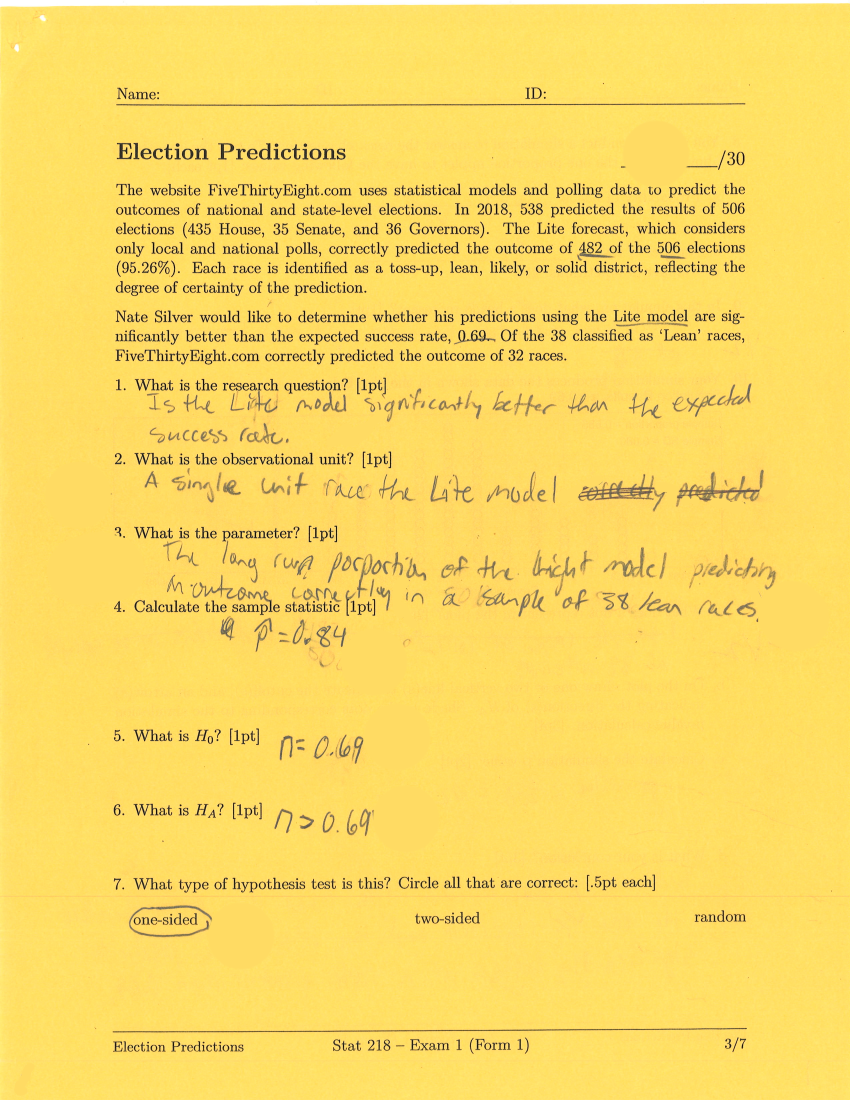 Name: ID:
Election Predictions
___/30
The website FiveThirtyEight.com uses statistical models and polling data to predict the
outcomes of national and state-level elections. In 2018, 538 predicted the results of 506
elections (435 House, 35 Senate, and 36 Governors). The Lite forecast, which considers
only local and national polls, correctly predicted the outcome of 482 of the 506 elections
(95.26%). Each race is identified as a toss-up, lean, likely, or solid district, reflecting the
degree of certainty of the prediction.
Nate Silver would like to determine whether his predictions using the Lite model are sig-
nificantly better than the expected success rate, 0.69. Of the 38 classified as ‘Lean’ races,
FiveThirtyEight.com correctly predicted the outcome of 32 races.
1. What is the research question? [1pt]
Is the Lite model significantly better than the expected
success rate.
2. What is the observational unit? [1pt]
A single unit race the Lite model correctly predicted
3. What is the parameter? [1pt]
The long run porportion of the model predicting
outcome correctly in a sample of 38 lean races.
4. Calculate the sample statistic [1pt]
p̂ = 0.84
5. What is H₀? [1pt]
π = 0.69
6. What is H_A? [1pt]
π > 0.69
7. What type of hypothesis test is this? Circle all that are correct: [.5pt each]
one-sided two-sided random
Election Predictions Stat 218 – Exam 1 (Form 1) 3/7